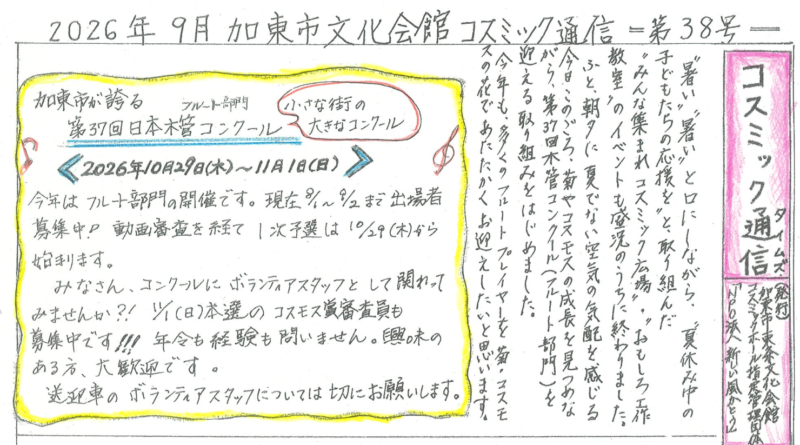 2026年 9月 加東市文化会館 コスミック通信 =第38号=
コスミック通信
タイムズ
【発行】
加東市東条文化会館
コスミックホール指定管理団体
NPO法人 新しい風かとう
"暑い""暑い"と口にしながら、"夏休み中の
子どもたちの応援を"と、取り組んだ
"みんな集まれコスミック広場"、"おもしろ工作
教室"のイベントも盛況のうちに終わりました。
ふと、朝夕に夏でない空気の気配を感じる
今日このごろ、菊やコスモスの成長を見つめな
がら、第37回木管コンクール(フルート部門)を
迎える取り組みをはじめました。
今年も、多くのフルートプレイヤーを菊・コスモ
スの花であたたかくお迎えしたいと思います。
加東市が誇る
フルート部門
第37回日本木管コンクール
小さな街の
大きなコンクール
2026年10月29日(木)~11月1日(日)
今年は フルート部門の開催です。現在 8/1~9/2まで 出場者
募集中!! 動画審査を経て 1次予選は 10/29(木)から
始まります。
みなさん、コンクールに ボランティアスタッフとして関わって
みませんか?! 11/1(日)本選の コスモス賞審査員も
募集中です!!! 年令も経験も問いません。興味の
ある方、大歓迎です。
送迎車の ボランティアスタッフについては 切にお願いします。